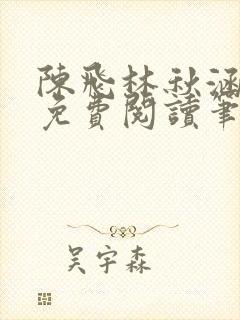 陳飛林秋涵
免費閱讀筆
吴宇森